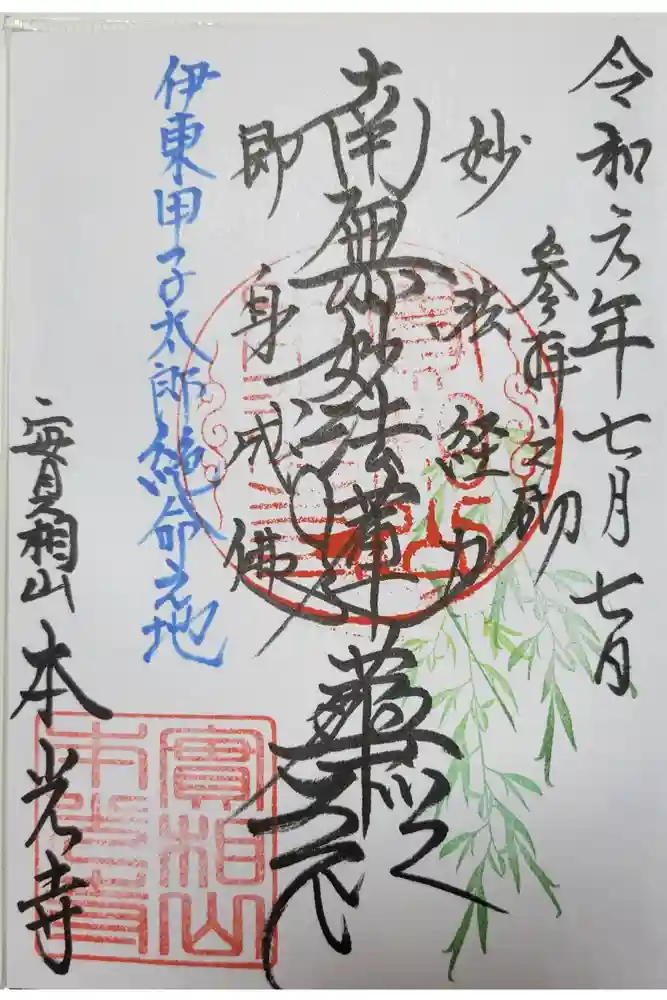 令和元年七月七日
参拝之砌
妙法経力
南無妙法蓮華經
即身成佛
伊東甲子太郎絶命之地
實相山
本光寺
實相山
本光寺